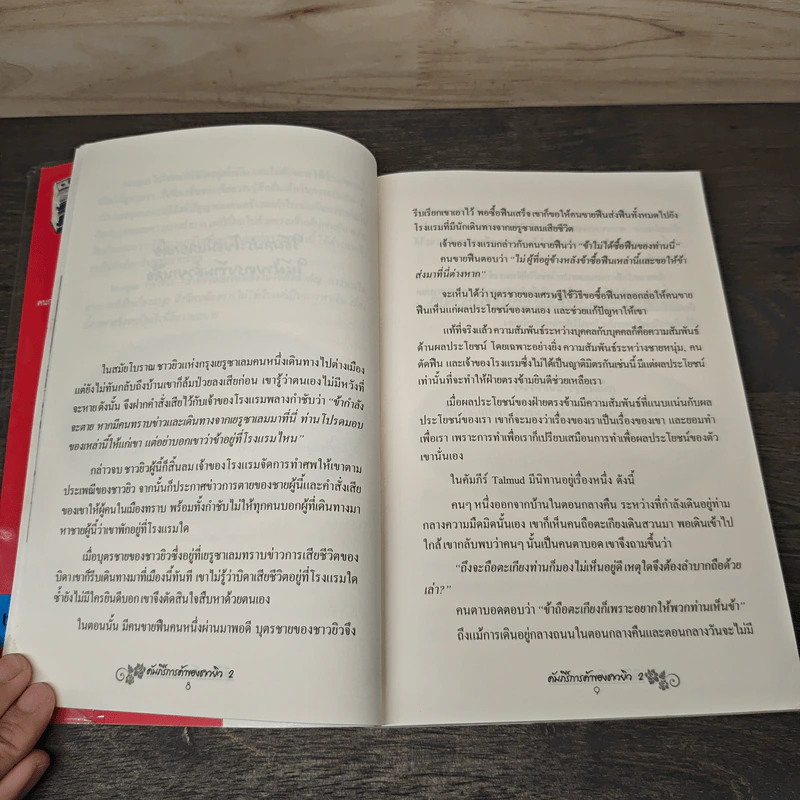 ในสมัยโบราณ ชาวยิวแห่งกรุงเยรูซาเลมคนหนึ่งเดินทางไปต่างเมือง
แต่ยังไม่ทันกลับถึงบ้านเขาก็ล้มป่วยลงเสียก่อน เขารู้ว่าตนเองไม่มีหวังที่
จะหาย ดังนั้น จึงฝากคำสั่งเสียไว้กับเจ้าของโรงแรมพลางกำชับว่า “ข้ากำลัง
จะตาย หากมีคนทราบข่าวและเดินทางจากเยรูซาเลมมาที่นี่ ท่านโปรดมอบ
ของเหล่านี้ให้แก่เขา แต่อย่าบอกเขาว่าข้าอยู่ที่โรงแรมไหน”
กล่าวจบ ชาวยิวผู้นี้ก็สิ้นลม เจ้าของโรงแรมจัดการทำศพให้เขาตาม
ประเพณีของชาวยิว จากนั้นก็ประกาศข่าวการตายของชายผู้นี้และคำสั่งเสีย
ของเขาให้ผู้คนในเมืองทราบ พร้อมทั้งกำชับไม่ให้ทุกคนบอกผู้ที่เดินทางมา
หาชายผู้นี้ว่าเขาพักอยู่ที่โรงแรมใด
เมื่อบุตรชายของชาวยิวซึ่งอยู่ที่เยรูซาเลมทราบข่าวการเสียชีวิตของ
บิดา เขาก็รีบเดินทางมาที่เมืองนี้ทันที เขาไม่รู้ว่าบิดาเสียชีวิตอยู่ที่โรงแรมใด
ซ้ำยังไม่มีใครยินดีบอก เขาจึงตัดสินใจสืบหาด้วยตนเอง
ในตอนนั้น มีคนขายฟืนคนหนึ่งผ่านมาพอดี บุตรชายของชาวยิวจึง
คัมภีร์การค้าของชาวยิว 2
๘
รีบเรียกเขาเอาไว้ พอซื้อฟืนเสร็จ เขาก็ขอให้คนขายฟืนส่งฟืนทั้งหมดไปยัง
โรงแรมที่มีนักเดินทางจากเยรูซาเลมเสียชีวิต
เจ้าของโรงแรมกล่าวกับคนขายฟืนว่า “ข้าไม่ได้ซื้อฟืนของท่านนี่”
คนขายฟืนตอบว่า “ไม่ ผู้ที่อยู่ข้างหลังข้าซื้อฟืนเหล่านี้และขอให้ข้า
ส่งมาที่นี่ต่างหาก”
จะเห็นได้ว่า บุตรชายของเศรษฐีใช้วิธีขอซื้อฟืนหลอกล่อให้คนขาย
ฟืนเห็นแก่ผลประโยชน์ของตนเอง และช่วยแก้ปัญหาให้เขา
แท้ที่จริงแล้ว ความสัมพันธ์ระหว่างบุคคลกับบุคคลก็คือความสัมพันธ์
ด้านผลประโยชน์ โดยเฉพาะอย่างยิ่ง ความสัมพันธ์ระหว่างชายหนุ่ม, คน
ตัดฟืน และเจ้าของโรงแรมซึ่งไม่ได้เป็นญาติมิตรกันเช่นนี้ มีแต่ผลประโยชน์
เท่านั้นที่จะทำให้ฝ่ายตรงข้ามยินดีช่วยเหลือเรา
เมื่อผลประโยชน์ของฝ่ายตรงข้ามมีความสัมพันธ์ที่แนบแน่นกับผล
ประโยชน์ของเรา เขาก็จะมองว่าเรื่องของเราเป็นเรื่องของเขา และยอมทำ
เพื่อเรา เพราะการทำเพื่อเราก็เปรียบเสมือนการทำเพื่อผลประโยชน์ของตัว
เขานั่นเอง
ในคัมภีร์ Talmud มีนิทานอยู่เรื่องหนึ่ง ดังนี้
คนๆ หนึ่งออกจากบ้านในตอนกลางคืน ระหว่างที่กำลังเดินอยู่ท่าม
กลางความมืดมิดนั้นเอง เขาก็เห็นคนถือตะเกียงเดินสวนมา พอเดินเข้าไป
ใกล้ เขากลับพบว่าคนๆ นั้นเป็นคนตาบอด เขาจึงถามขึ้นว่า
“ถึงจะถือตะเกียงท่านก็มองไม่เห็นอยู่ดี เหตุใดจึงต้องลำบากถือด้วย
เล่า?”
คนตาบอดตอบว่า “ข้าถือตะเกียงก็เพราะอยากให้พวกท่านเห็นข้า”
ถึงแม้การเดินอยู่กลางถนนในตอนกลางคืนและตอนกลางวันจะไม่มี
คัมภีร์การค้าของชาวยิว 2
๑